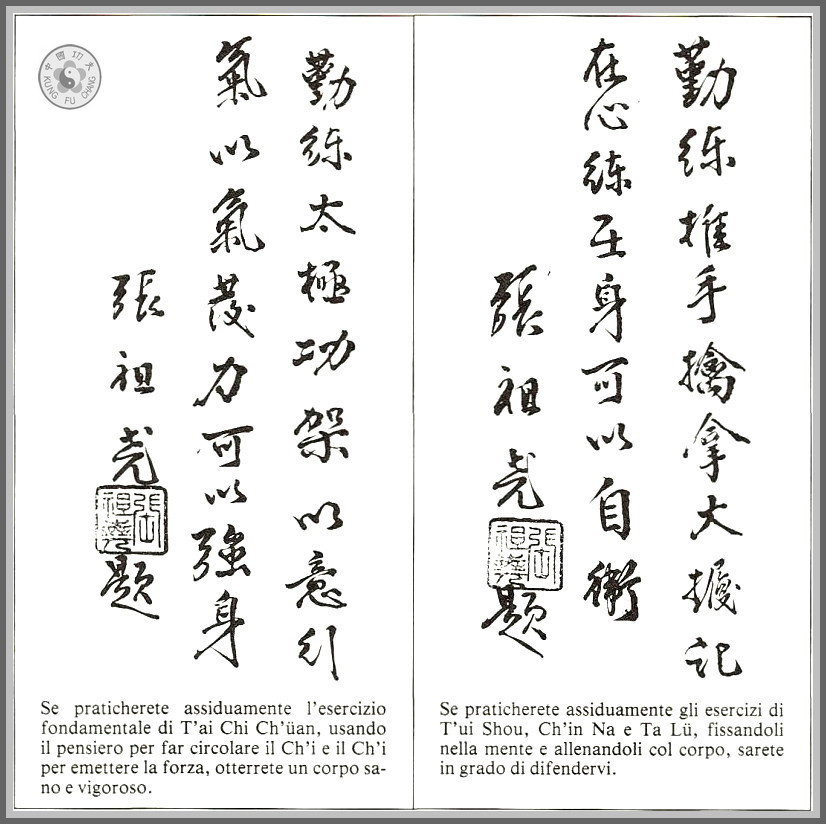 中國功夫
KUNG FU CHANG
勤練太極功架以意引
氣以氣發力可以強身
張祖堯題
張祖堯
Se praticherete assiduamente l'esercizio
fondamentale di T'ai Chi Ch'üan, usando
il pensiero per far circolare il Ch'i e il Ch'i
per emettere la forza, otterrete un corpo sa-
no e vigoroso.
勤練推手擒拿大記
在心練在身可以自衛
張祖堯題
張祖堯
Se praticherete assiduamente gli esercizi di
T'ui Shou, Ch'in Na e Ta Lü, fissandoli
nella mente e allenandoli col corpo, sarete
in grado di difendervi.